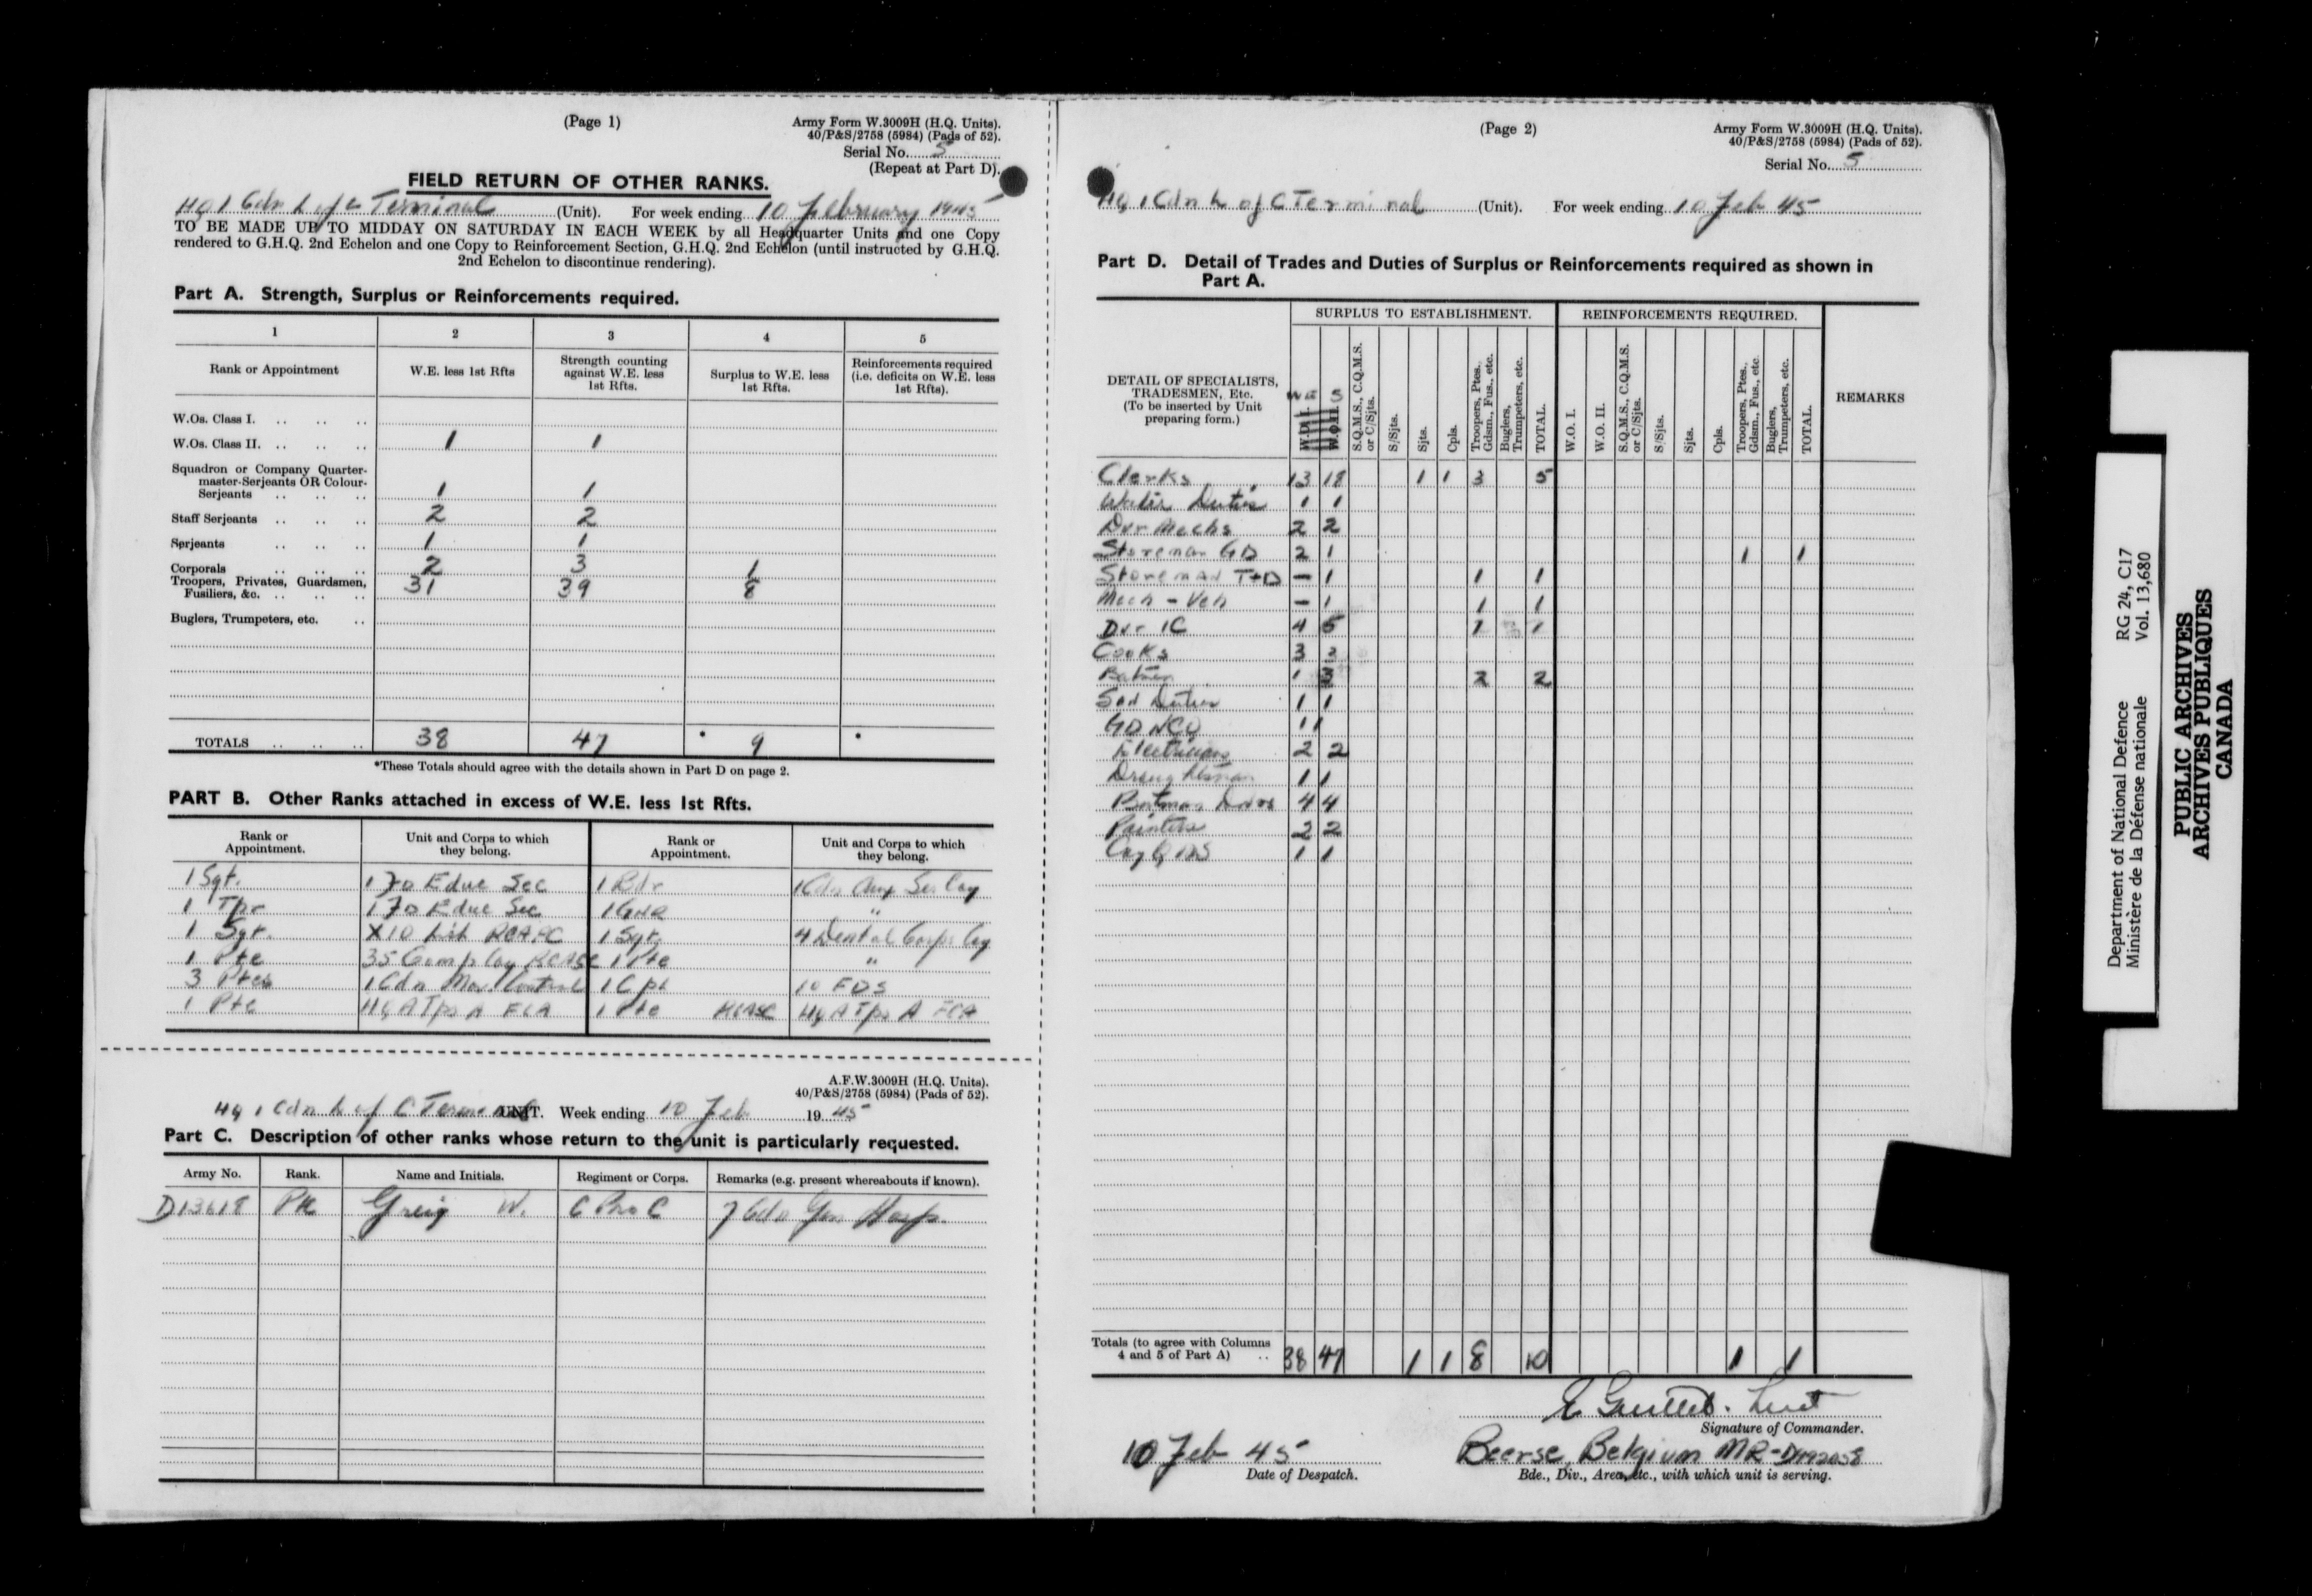 (Page 1)
Army Form W.3009H (H.Q. Units).
40/P&S/2758 (5984) (Pads of 52).
Serial No. 5
(Repeat at Part D).
FIELD RETURN OF OTHER RANKS.
HQ 1 Cdn L of C Terminal (Unit). For week ending 10 February 1945
TO BE MADE UP TO MIDDAY ON SATURDAY IN EACH WEEK by all Headquarter Units and one Copy
rendered to G.H.Q. 2nd Echelon and one Copy to Reinforcement Section, G.H.Q. 2nd Echelon (until instructed by G.H.Q.
2nd Echelon to discontinue rendering).
Part A. Strength, Surplus or Reinforcements required.
1 2 3 4 5
Rank or Appointment
W.E. less 1st Rfts
Strength counting
against W.E. less
1st Rfts.
Surplus to W.E. less
1st Rfts.
Reinforcements required
(i.e. deficits on W.E. less
1st Rfts).
W.Os. Class I. .. .. ..
W.Os. Class II. .. .. .. 1 1
Squadron or Company Quarter-
master-Serjeants OR Colour-
Serjeants .. .. .. 1 1
Staff Serjeants .. .. .. 2 2
Serjeants .. .. .. 1 1
Corporals .. .. .. 2 3 1
Troopers, Privates, Guardsmen,
Fusiliers, &c. .. .. .. 31 39 8
Buglers, Trumpeters, etc. ..
TOTALS .. .. .. 38 47 * 9 *
*These Totals should agree with the details shown in Part D on page 2.
PART B. Other Ranks attached in excess of W.E. less 1st Rfts.
Rank or
Appointment.
Unit and Corps to which
they belong.
Rank or
Appointment.
Unit and Corps to which
they belong.
1 Sgt. 170 Educ Sec 1 Bdr 1 Cdn Aux Ser Coy
1 Tpr 170 Educ Sec 1 Gnr "
1 Sgt. X10 List RCAPC 1 Sgt. 4 Dental Corps Coy
1 Pte 35 Comp Coy RCASC 1 Pte "
3 Ptes 1 Cdn Mov. Control 1 Cpl 10 FDS
1 Pte HQ A Tps A FCA 1 Pte RCASC HQ A Tps A FCA
A.F.W.3009H (H.Q. Units).
40/P&S/2758 (5984) (Pads of 52).
HQ 1 Cdn L of C Terminal UNIT. Week ending 10 Feb 19 45
Part C. Description of other ranks whose return to the unit is particularly requested.
Army No. Rank. Name and Initials. Regiment or Corps. Remarks (e.g. present whereabouts if known).
D13618 Pte Greig W. C Pro C 7 Cdn Gen Hosp.
(Page 2)
Army Form W.3009H (H.Q. Units).
40/P&S/2758 (5984) (Pads of 52).
Serial No. 5
HQ 1 Cdn L of C Terminal (Unit). For week ending 10 Feb 45
Part D. Detail of Trades and Duties of Surplus or Reinforcements required as shown in
Part A.
SURPLUS TO ESTABLISHMENT. REINFORCEMENTS REQUIRED.
DETAIL OF SPECIALISTS,
TRADESMEN, Etc.
(To be inserted by Unit
preparing form.)
WE S
W.O. I.
W.O. II.
S.Q.M.S., C.Q.M.S.
or C/Sjts.
S/Sjts.
Sjts.
Cpls.
Troopers, Ptes.,
Gdsm., Fus., etc.
Buglers,
Trumpeters, etc.
TOTAL.
W.O. I.
W.O. II.
S.Q.M.S., C.Q.M.S.
or C/Sjts.
S/Sjts.
Sjts.
Cpls.
Troopers, Ptes.,
Gdsm., Fus., etc
Buglers,
Trumpeters, etc.
TOTAL.
REMARKS
Clerks 13 18 1 1 3 5
Water Duties 1 1
Dvr Mechs 2 2
Storeman GD 2 1 1 1
Storeman T+D – 1 1 1
Mech - Veh – 1 1 1
Dvr IC 4 5 1 1
Cooks 3 3
Batmen 1 3 2 2
San Duties 1 1
GD NCO 1 1
Electricians 2 2
Draughtsman 1 1
Batman Dvrs 4 4
Painters 2 2
1 1
Totals (to agree with Columns
4 and 5 of Part A) .. 38 47 1 1 8 10 1 1
Lieut
Signature of Commander.
10 Feb 45
Date of Despatch.
Beerse, Belgium MR-D192058
Bde., Div., Area, etc., with which unit is serving.
Department of National Defence RG 24, C17
Ministère de la Défense nationale Vol. 13,680
PUBLIC ARCHIVES
ARCHIVES PUBLIQUES
CANADA